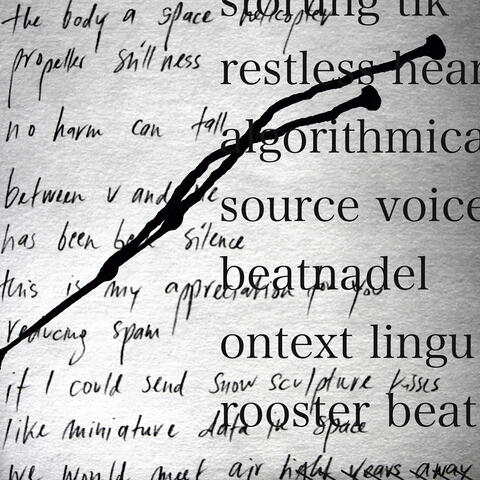 the body a space helicopter
propeller stillness
no harm can fall
between v and me
has been be silence
this is my appreciation for you
reducing spam
if I could send snow sculpture kisses
like miniature data in space
we would meet air light years away
storming uk
restless hear
algorithmica
source voice
beatnadel
ontext lingu
rooster beat